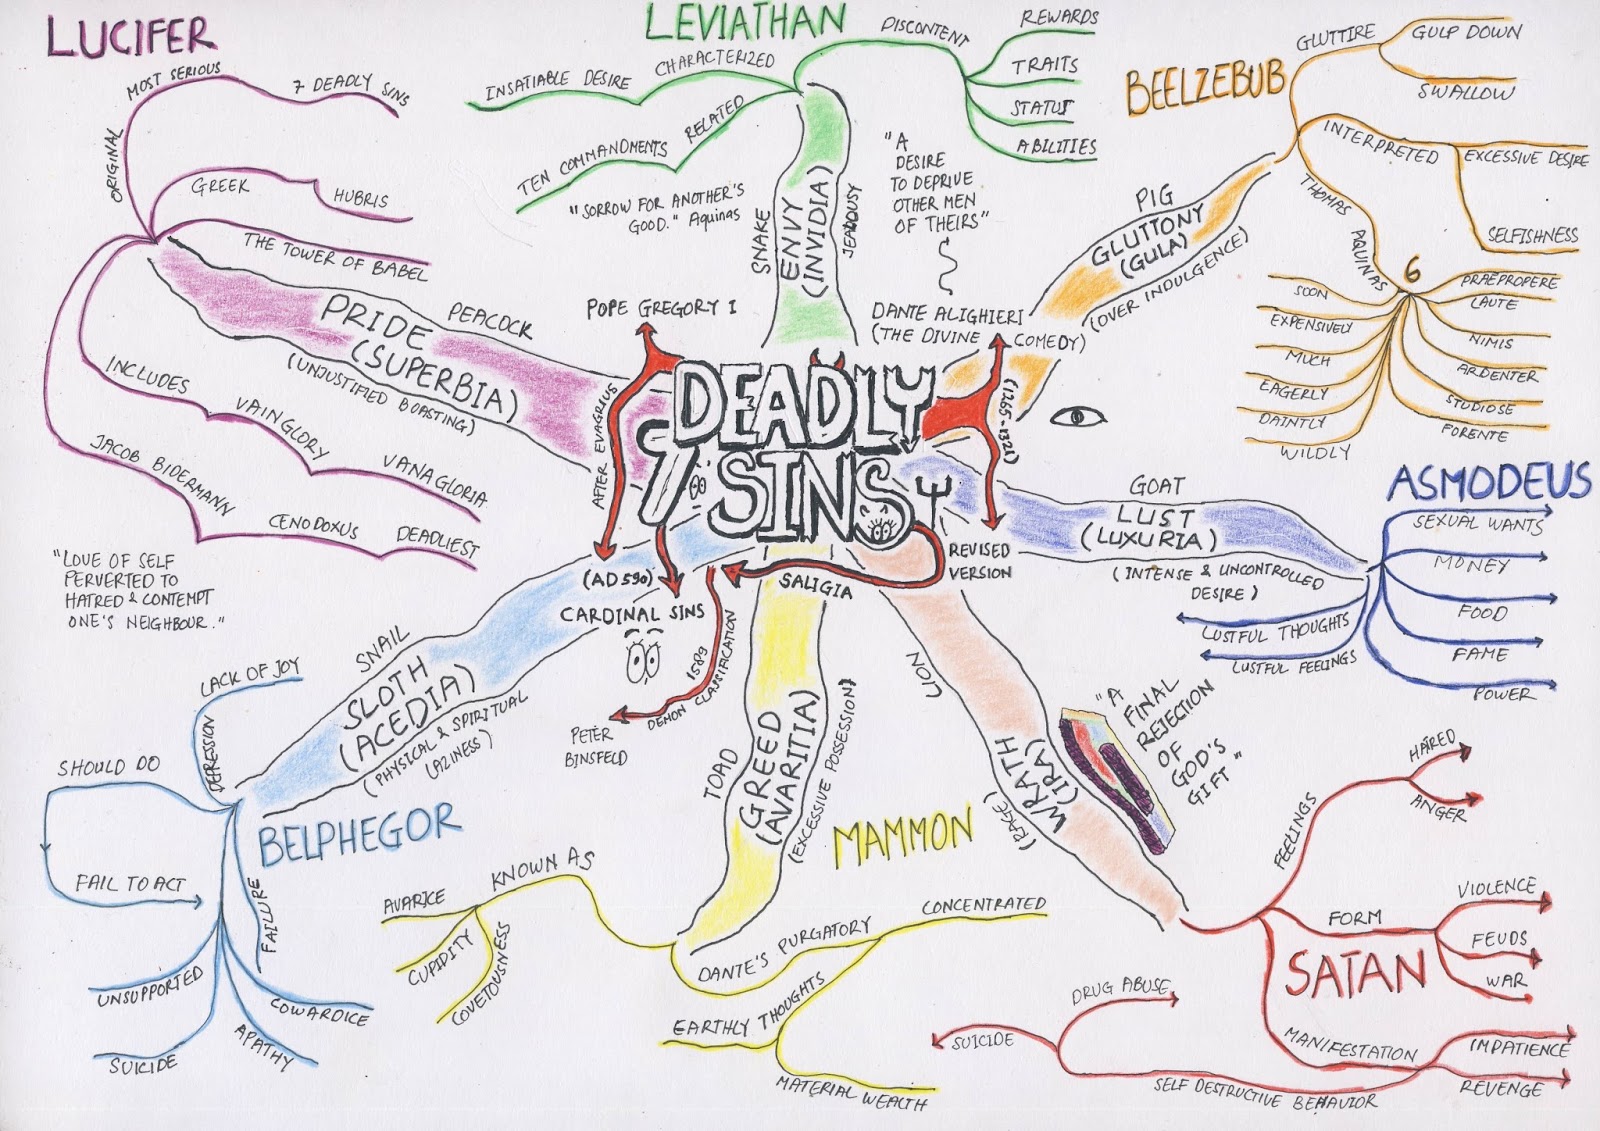 DEADLY
7 SINS
POPE GREGORY I
AFTER EVAGRIUS
(AD 590)
CARDINAL SINS
DANTE ALIGHIERI
(THE DIVINE COMEDY)
(1265-1321)
"A
DESIRE
TO DEPRIVE
OTHER MEN
OF THEIRS"
REVISED
VERSION
SALIGIA
1589
DEMON CLASSIFICATION
PETER
BINSFELD
LUCIFER
PRIDE
(SUPERBIA)
PEACOCK
(UNJUSTIFIED BOASTING)
ORIGINAL
MOST SERIOUS
7 DEADLY SINS
GREEK
HUBRIS
THE TOWER OF BABEL
INCLUDES
VAINGLORY
VANAGLORIA
JACOB BIDERMANN
CENODOXUS
DEADLIEST
"LOVE OF SELF
PERVERTED TO
HATRED & CONTEMPT
ONE'S NEIGHBOUR."
LEVIATHAN
SNAKE
ENVY
(INVIDIA)
JEALOUSY
INSATIABLE DESIRE
CHARACTERIZED
TEN COMMANDMENTS
RELATED
"SORROW FOR ANOTHER'S
GOOD." Aquinas
DISCONTENT
REWARDS
TRAITS
STATUS
ABILITIES
BEELZEBUB
PIG
GLUTTONY
(GULA)
(OVER INDULGENCE)
GLUTTIRE
GULP DOWN
SWALLOW
INTERPRETED
EXCESSIVE DESIRE
SELFISHNESS
THOMAS
AQUINAS
6
SOON
EXPENSIVELY
MUCH
EAGERLY
DAINTLY
WILDLY
PRAEPROPERE
LAUTE
NIMIS
ARDENTER
STUDIOSE
FORENTE
ASMODEUS
GOAT
LUST
(LUXURIA)
(INTENSE & UNCONTROLLED
DESIRE)
SEXUAL WANTS
MONEY
FOOD
FAME
POWER
LUSTFUL THOUGHTS
LUSTFUL FEELINGS
LION
WRATH
(IRA)
(RAGE)
"A
FINAL
REJECTION
OF
GOD'S
GIFT"
SATAN
FEELINGS
HATRED
ANGER
FORM
VIOLENCE
FEUDS
WAR
MANIFESTATION
IMPATIENCE
REVENGE
SELF DESTRUCTIVE BEHAVIOR
DRUG ABUSE
SUICIDE
MAMMON
TOAD
GREED
(AVARITIA)
(EXCESSIVE POSSESSION)
KNOWN AS
AVARICE
CUPIDITY
COVETOUSNESS
DANTE'S PURGATORY
CONCENTRATED
EARTHLY THOUGHTS
MATERIAL WEALTH
BELPHEGOR
SNAIL
SLOTH
(ACEDIA)
(PHYSICAL & SPIRITUAL
LAZINESS)
LACK OF JOY
DEPRESSION
SHOULD DO
FAIL TO ACT
FAILURE
UNSUPPORTED
SUICIDE
COWARDICE
APATHY